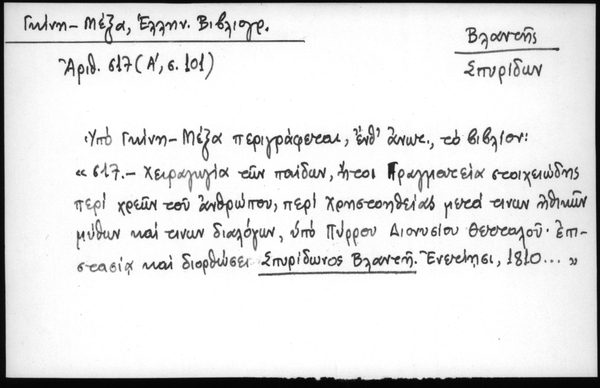 Γκίνη-Μέξα, Ἑλλην. Βιβλιογρ.
Ἀριθ. 617 (Α', σ. 101)
Βλαντῆς
Σπυρίδων
Ὑπό Γκίνη-Μέξα περιγράφεται, ἔνθ' ἄνωτ., τό βιβλίον:
« 617.- Χειραγωγία τῶν παίδων, ἤτοι Πραγματεία στοιχειώδης
περί χρεῶν τοῦ ἀνθρώπου, περί χρηστοηθείας μετά τινων ἠθικῶν
μύθων καί τινων διαλόγων, ὑπό Πύρρου Διονυσίου Θετταλοῦ· ἐπι-
στασίᾳ καί διορθώσει Σπυρίδωνος Βλαντῆ. Ἐνετίῃσι, 1810... »